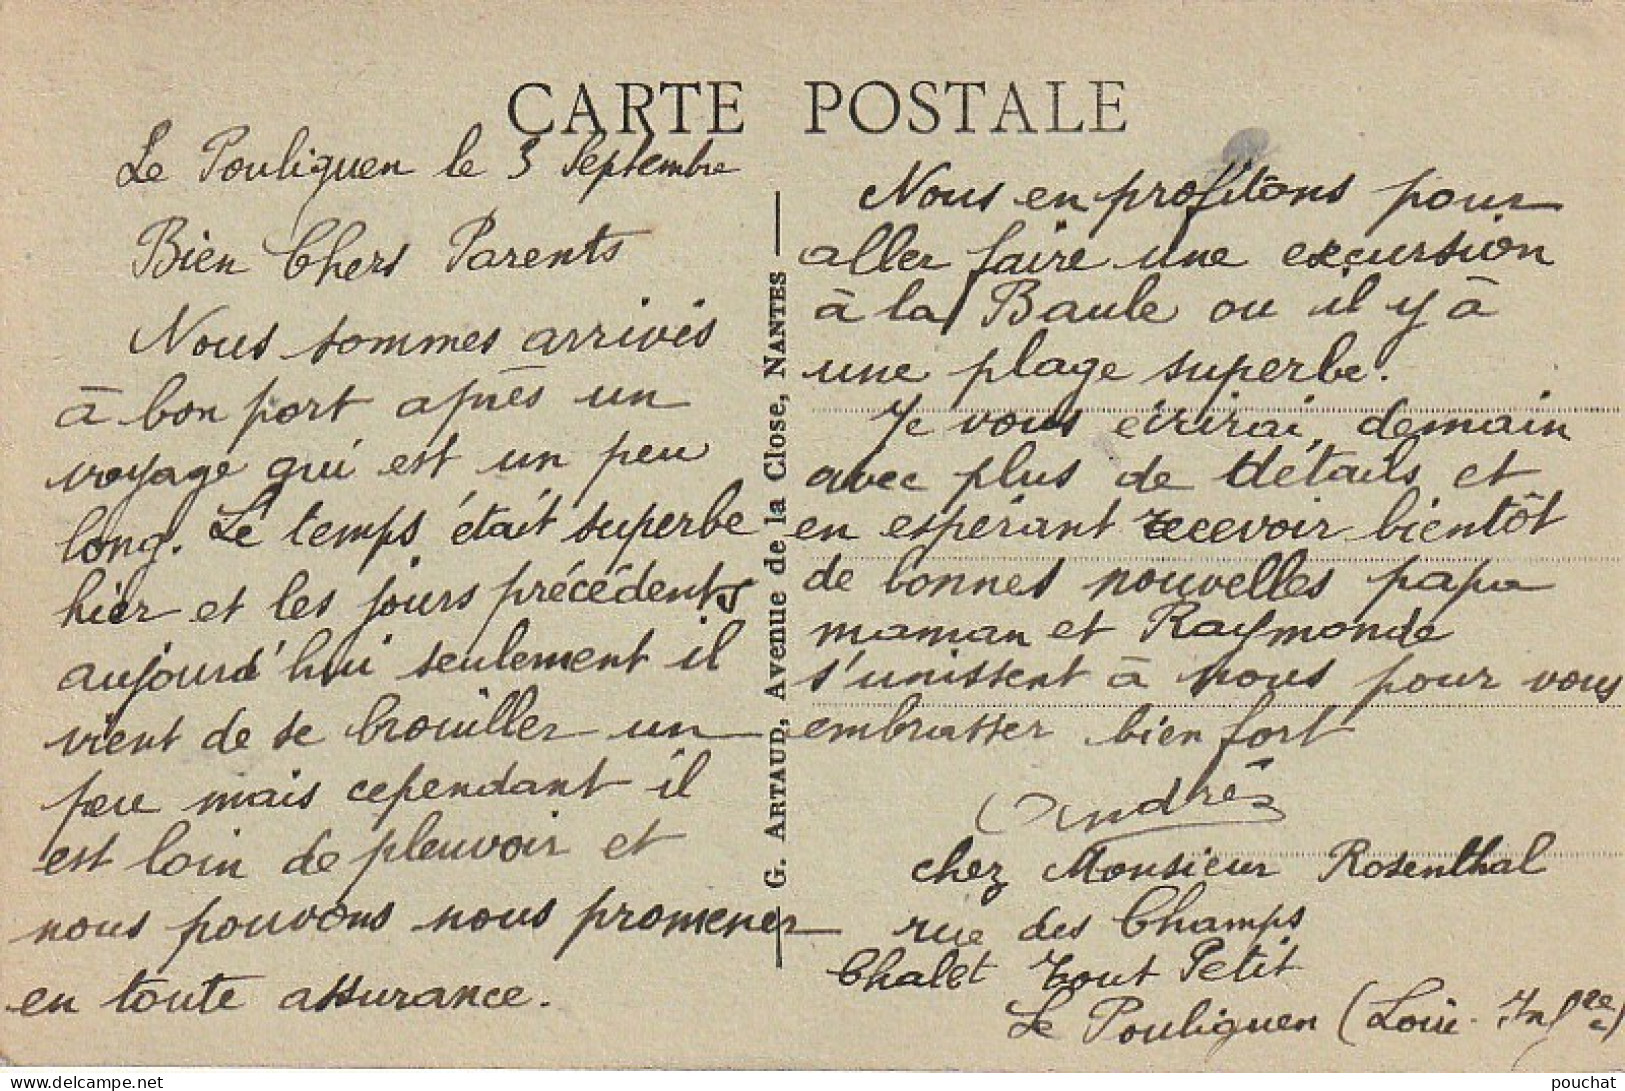 CARTE POSTALE
Le Pouliguen le 3 Septembre
Bien Chers Parents
Nous sommes arrivés
à bon port après un
voyage qui est un peu
long. Le temps était superbe
hier et les jours précédents
aujourd'hui seulement il
vient de se brouiller un
peu mais cependant il
est loin de pleuvoir et
nous pouvons nous promener
en toute assurance.
G. ARTAUD, Avenue de la Close, NANTES
Nous en profitons pour
aller faire une excursion
à la Baule ou il y à
une plage superbe.
Je vous écrirai, demain
avec plus de détails et
en espérant recevoir bientôt
de bonnes nouvelles papa
maman et Raymonde
s'unissent à nous pour vous
embrasser bien fort
André
chez Monsieur Rosenthal
rue des Champs
Chalet Tout Petit
Le Pouliguen (Loire-Infre)
delcampe.net
pouchat